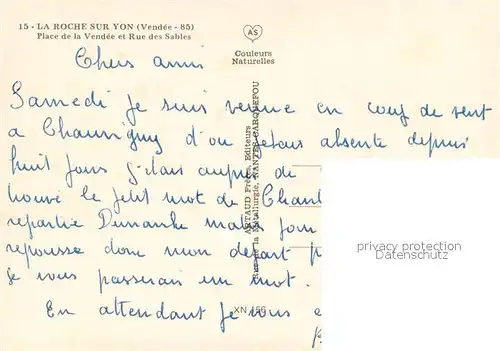 15 - LA ROCHE SUR YON (Vendée - 85)
Place de la Vendée et Rue des Sables
AS
Couleurs
Naturelles
Chers amis
Samedi je suis venue en coup de vent
a Chauvigny d'ou j'etais absente depuis
huit jours j'etais aupres de
trouvé le petit mot de Chant
repartie Dimanche matin
repousse donc mon depart p
je vous passerai un mot.
En attendant je vous e
ARTAUD Frères, Editeurs
Rue de la Métallurgie, NANTES-CARQUEFOU
XN 156
privacy protection
Datenschutz